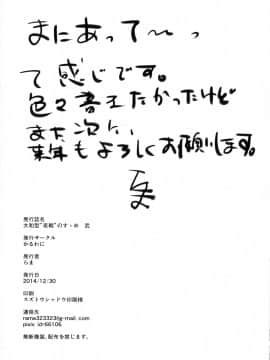 まにあって〜っ
て感じです。
色々言えたかったけど
また次に、
来年もよろしくお願いします。
発行誌名
発行サークル
かるわに
発行者
らま
発行日
2014/12/30
印刷
スズトウシャドウ印刷様
連絡先
rama323323@g-mail.com
pixiv id:66106
無断複製、配布を禁じます。